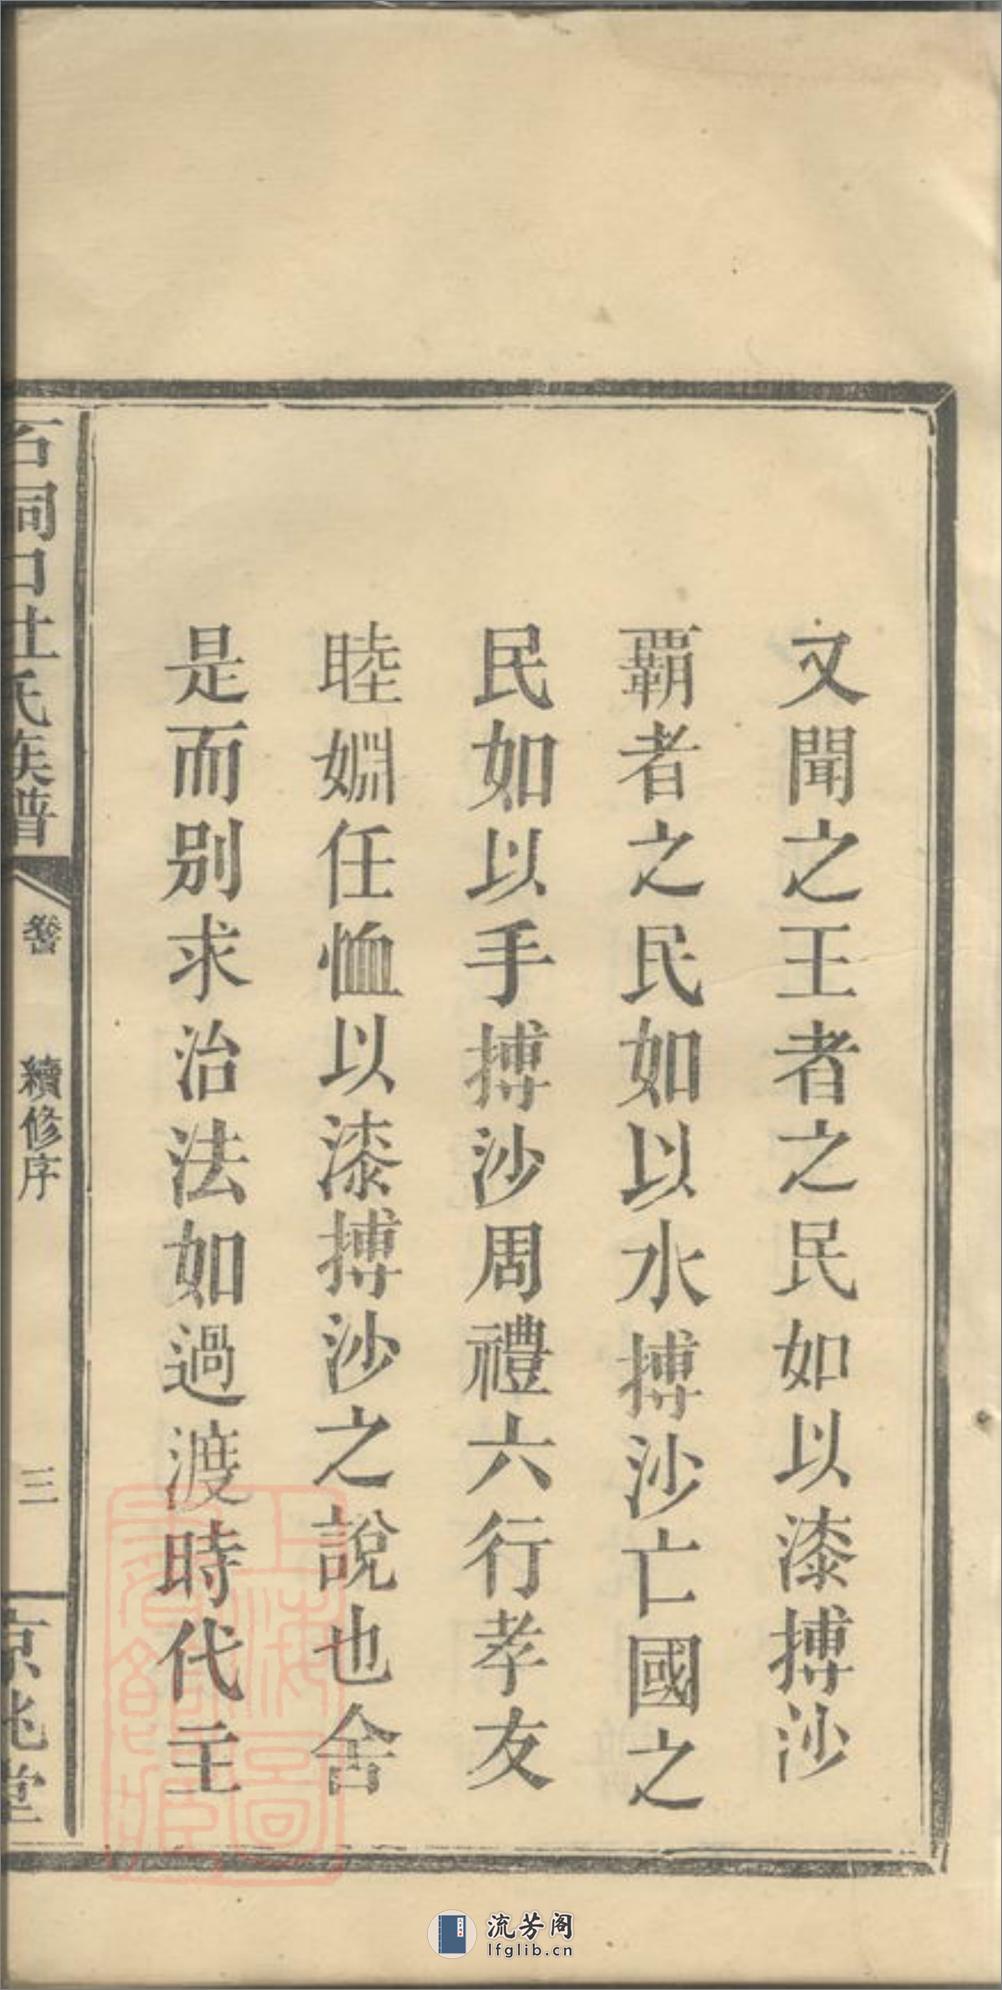 又聞之王者之民如以漆搏沙
覇者之民如以水搏沙亡國之
民如以手搏沙周禮六行孝友
睦婣任恤以漆搏沙之說也舍
是而別求治法如過渡時代主
石洞口杜氏族譜
續修序
三
京兆堂
上海圖書館藏
流芳阁
lfglib.cn